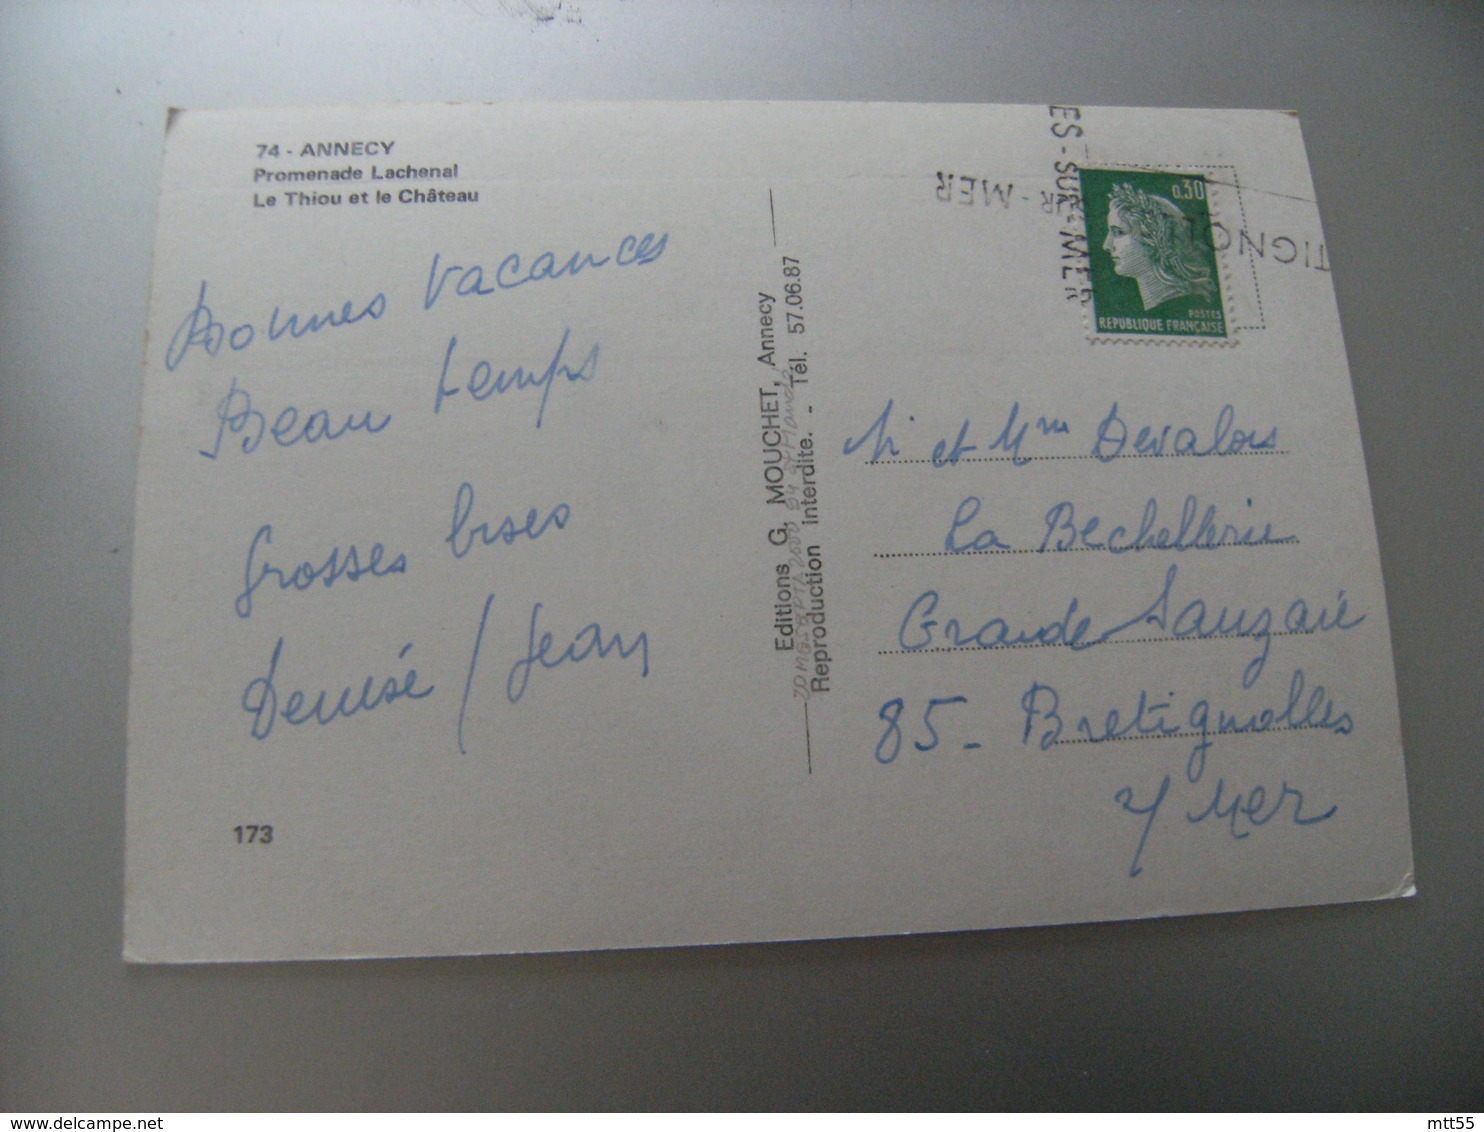 74 - ANNECY
Promenade Lachenal
Le Thiou et le Château
Bonnes vacances
Beau temps
Grosses bises
Denise / Jean
173
Editions G. MOUCHET, Annecy
Reproduction interdite. - Tél. 57.06.87
ES - SUR - MER
R - MER
TIGNOL
0,30
POSTES
REPUBLIQUE FRANÇAISE
M et Mme Devalois
La Bechellerie
Grande Sauzaie
85 - Bretignolles
s/ Mer
mtt55